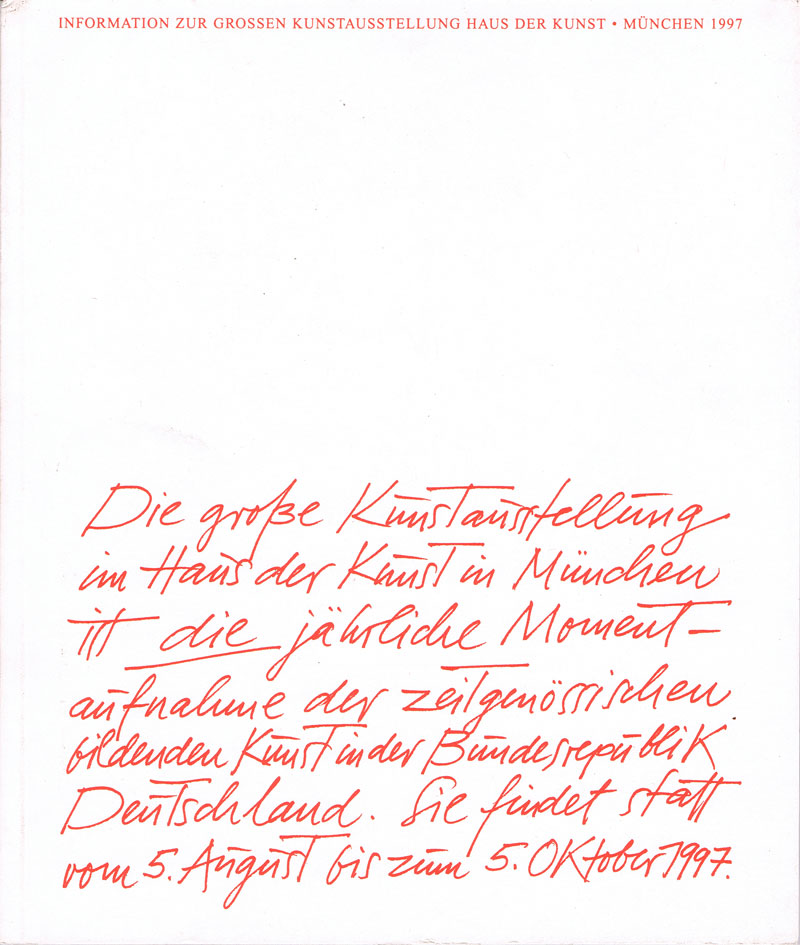 INFORMATION ZUR GROSSEN KUNSTAUSSTELLUNG HAUS DER KUNST • MÜNCHEN 1997
Die große Kunstausstellung
im Haus der Kunst in München
ist die jährliche Moment-
aufnahme der zeitgenössischen
bildenden Kunst in der Bundesrepublik
Deutschland. Sie findet statt
vom 5. August bis zum 5. Oktober 1997.